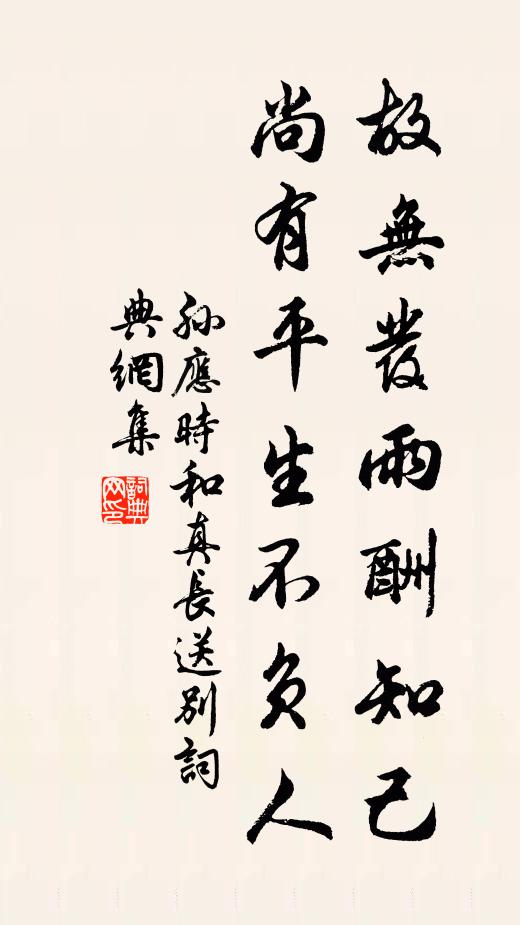 故無叢雨酬知己
尚有平生不負人
孫應時和真長送別詞
典網集
詞典
网印